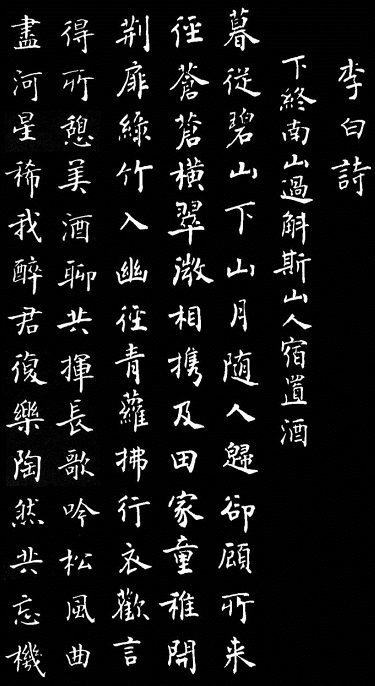 李白詩
下終南山過斛斯山人宿置酒
暮從碧山下山月随人歸卻顧所来
径蒼蒼橫翠微相携及田家童稚開
荆扉綠竹入幽径青蘿拂行衣歡言
得所憩美酒聊共揮長歌吟松風曲
盡河星稀我醉君復樂陶然共忘機